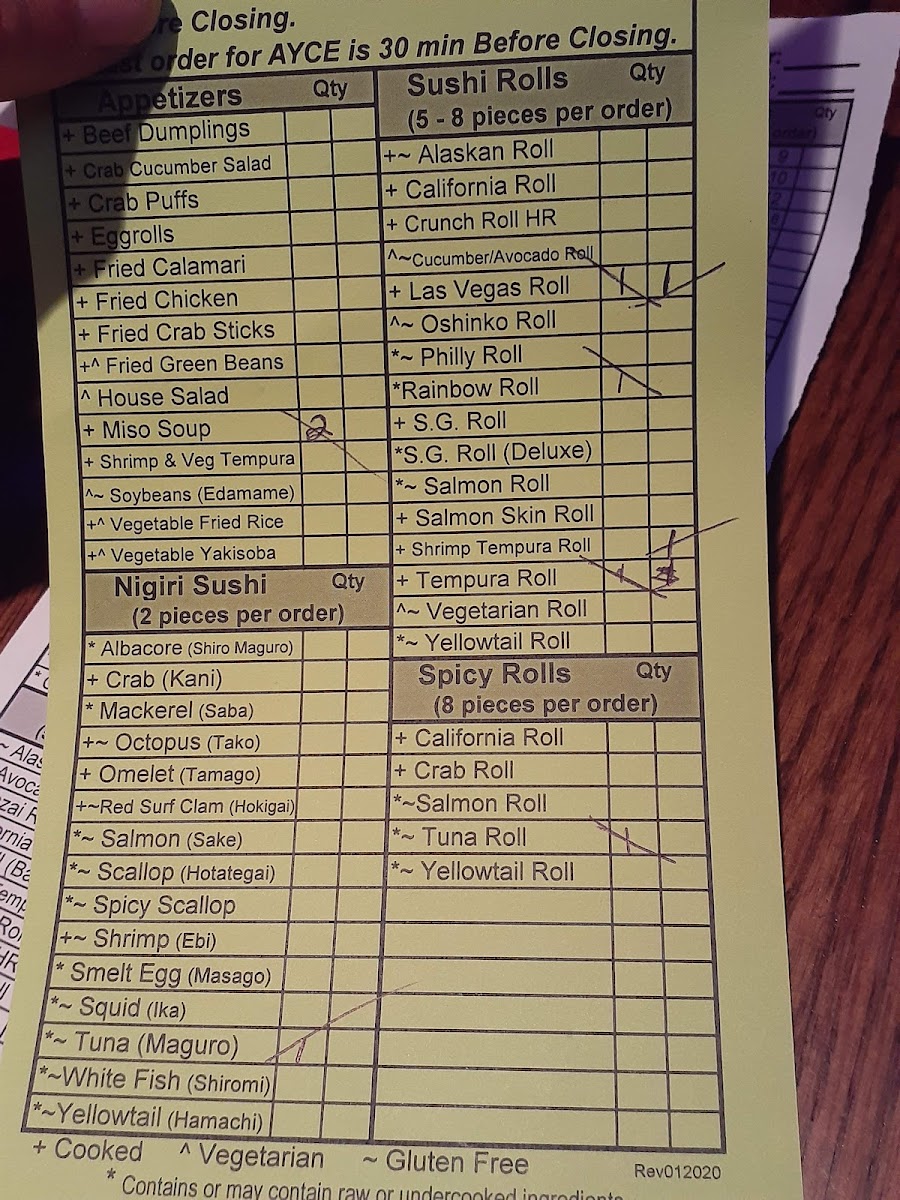 re Closing.
order for AYCE is 30 min Before Closing.
Appetizers Qty
+ Beef Dumplings
+ Crab Cucumber Salad
+ Crab Puffs
+ Eggrolls
+ Fried Calamari
+ Fried Chicken
+ Fried Crab Sticks
+^ Fried Green Beans
^ House Salad
+ Miso Soup 2
+ Shrimp & Veg Tempura
^~ Soybeans (Edamame)
+^ Vegetable Fried Rice
+^ Vegetable Yakisoba
Nigiri Sushi Qty
(2 pieces per order)
* Albacore (Shiro Maguro)
+ Crab (Kani)
* Mackerel (Saba)
+~ Octopus (Tako)
+ Omelet (Tamago)
+~Red Surf Clam (Hokigai)
*~ Salmon (Sake)
*~ Scallop (Hotategai)
*~ Spicy Scallop
+~ Shrimp (Ebi)
* Smelt Egg (Masago)
*~ Squid (Ika)
*~ Tuna (Maguro) 1
*~White Fish (Shiromi)
*~Yellowtail (Hamachi)
Sushi Rolls Qty
(5 - 8 pieces per order)
+~ Alaskan Roll
+ California Roll
+ Crunch Roll HR
^~Cucumber/Avocado Roll
+ Las Vegas Roll 1 1
^~ Oshinko Roll
*~ Philly Roll
*Rainbow Roll 1
+ S.G. Roll
*S.G. Roll (Deluxe)
*~ Salmon Roll
+ Salmon Skin Roll
+ Shrimp Tempura Roll 1
+ Tempura Roll 1
^~ Vegetarian Roll
*~ Yellowtail Roll
Spicy Rolls Qty
(8 pieces per order)
+ California Roll
+ Crab Roll
*~Salmon Roll
*~ Tuna Roll 1
*~ Yellowtail Roll
+ Cooked ^ Vegetarian ~ Gluten Free
Rev012020
* Contains or may contain raw or undercooked ingredients